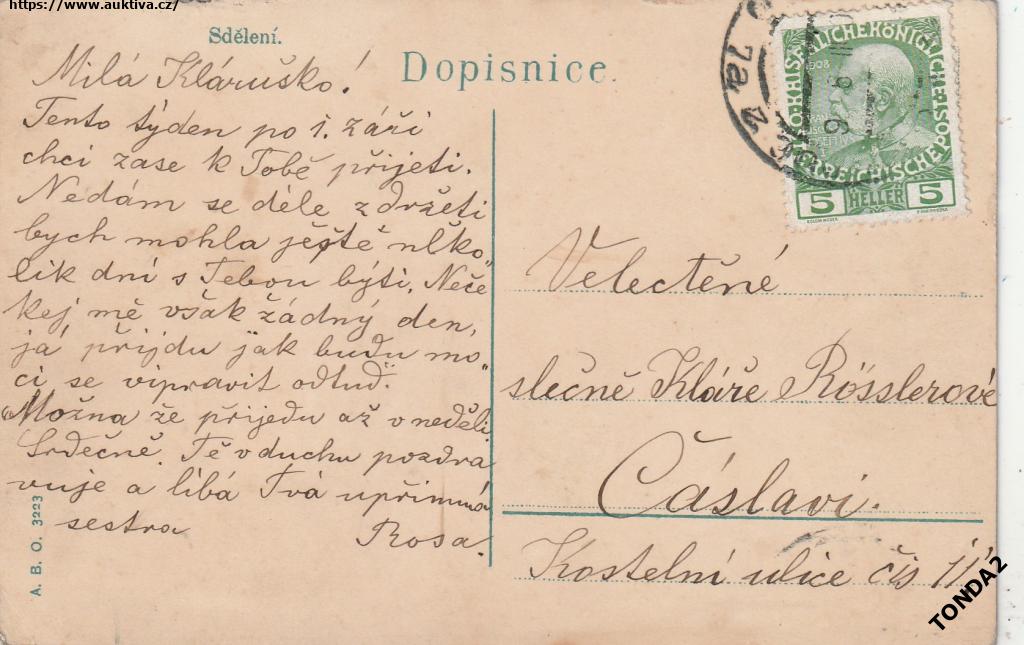 https://www.auktiva.cz/
Sdělení.
Dopisnice.
Milá Kláruško!
Tento týden po 1. září
chci zase k Tobě přijeti.
Nedám se déle zdržeti
bych mohla ještě něko„
lik dní s Tebou býti. Neče
kej mě však žádný den,
já přijdu jak budu mo„
ci se vipravit odtuď.
Možna že přijedu až v neděli
Srdečně Tě v duchu pozdra
vuje a líbá Tvá upřimná
sestra Rosa.
A. B. O. 3223
5 HELLER 5
1908
Velectěné
slečně Kláře Rösslerové
Čáslavi.
Kostelní ulice čís 11
TONDA2